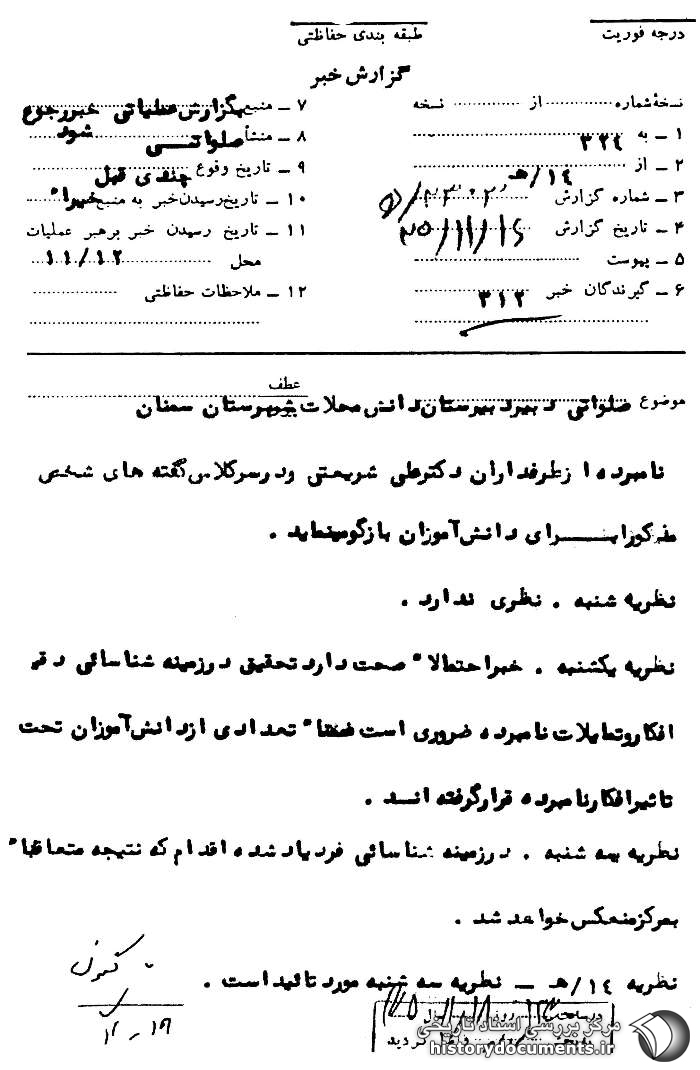 درجه فوریت
طبقه بندی حفاظتی
گزارش خبر
نسخهٔ شماره از نسخه
۱ ـ به ۳۲٤
۲ ـ از ۱٤/هـ
۳ ـ شماره گزارش
۴ ـ تاریخ گزارش
۵ ـ پیوست
۶ ـ گیرندگان خبر ۳۱۲
۷ ـ منبع بگزارش عملیاتی خبر رجوع شود
۸ ـ منشأ صلواتـــی
۹ ـ تاریخ وقوع چندی قبل
۱۰ ـ تاریخ رسیدن خبر به منبع اخیرا"
۱۱ ـ تاریخ رسیدن خبر برهبر عملیات
محل ۱۱/۱۲
۱۲ ـ ملاحظات حفاظتی
عطف
موضوع صلواتی دبیر دبیرستان دانش محلات شهرستان سمنان
نامبرده از طرفداران دکترعلی شریعتی و در سرکلاس گفته های شخص
مذکور را بـــرای دانش آموزان بازگو مینماید .
نظریه شنبه . نظری ندارد .
نظریه یکشنبه . خبر احتمالا" صحت دارد تحقیق در زمینه شناسائی دقیق
افکار و تمایلات نامبرده ضروری است ضمنا" تعدادی از دانش آموزان تحت
تاثیر افکار نامبرده قرار گرفته انـد .
نظریه سه شنبه . در زمینه شناسائی فرد یاد شده اقدام که نتیجه متعاقبا"
بمرکز منعکس خواهد شد .
نظریه ۱٤/هـ ـ نظریه سه شنبه مورد تائید است .
در ساعت روز سال
گردید
مرکز بررسی اسناد تاریخی
historydocuments.ir